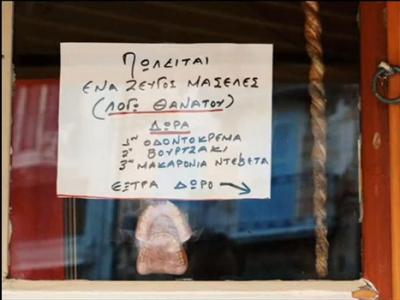 ΠΩΛΕΙΤΑΙ
ΕΝΑ ΖΕΥΓΟΣ ΜΑΣΕΛΕΣ
(ΛΟΓΩ ΘΑΝΑΤΟΥ)
ΔΩΡΑ
1ον ΟΔΟΝΤΟΚΡΕΜΑ
2ον ΒΟΥΡΤΣΑΚΙ
3ον ΜΑΚΑΡΟΝΙΑ ΝΤΕΒΕΤΑ
ΕΞΤΡΑ ΔΩΡΟ →